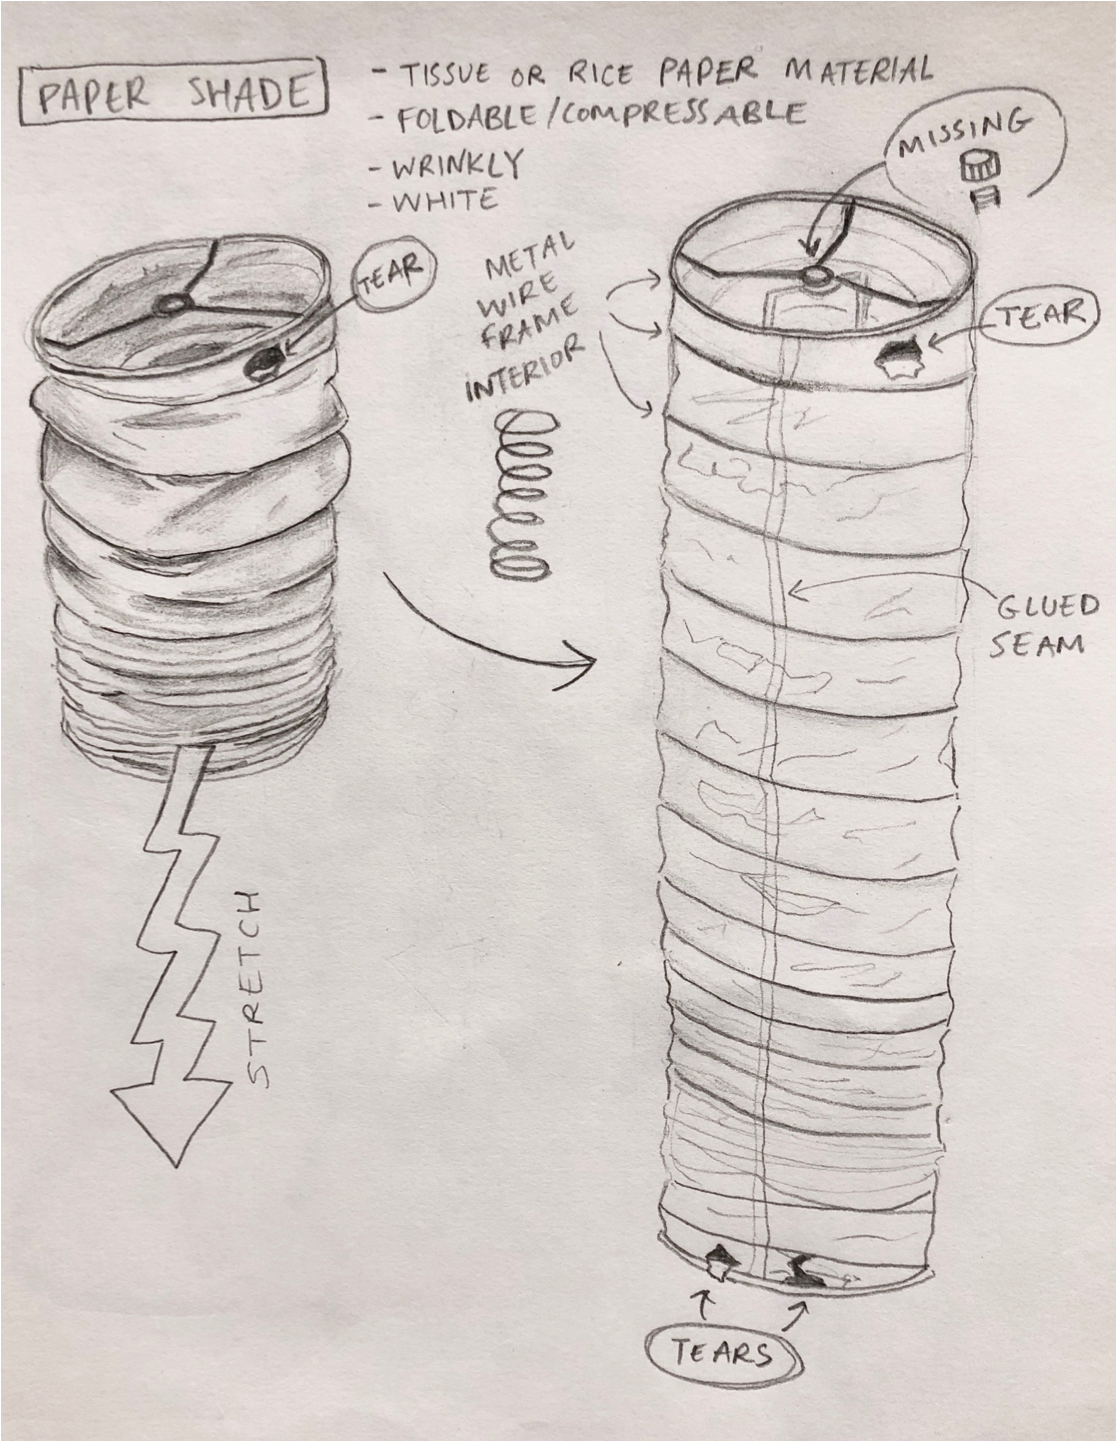 PAPER SHADE
- TISSUE OR RICE PAPER MATERIAL
- FOLDABLE/COMPRESSABLE
- WRINKLY
- WHITE
MISSING
TEAR
METAL
WIRE
FRAME
INTERIOR
TEAR
GLUED
SEAM
STRETCH
TEARS